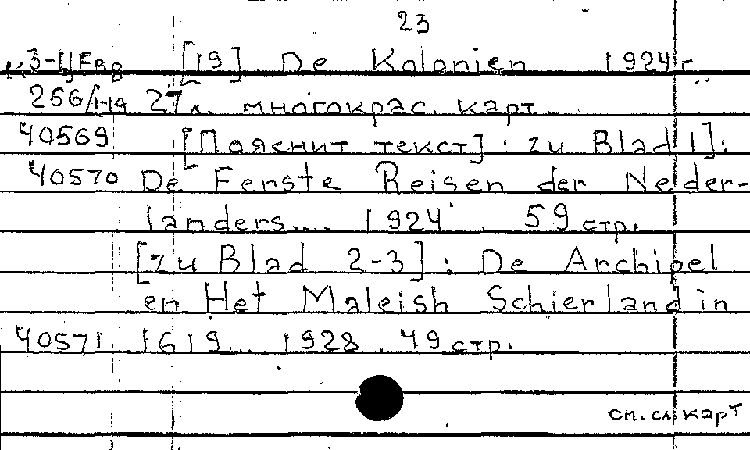 23
[19] De Kolonien 1924 г.
256/1-19 27 л. многокрас. карт.
40569 [Пояснит текст]: zu Blad 1]:
40570 De Eerste Reisen der Neder-
landers.... 1924. 59 стр.
[zu Blad 2-3]: De Archipel
en Het Maleish Schierland in
40571 1619... 1928. 49 стр.
сп. сл. карт